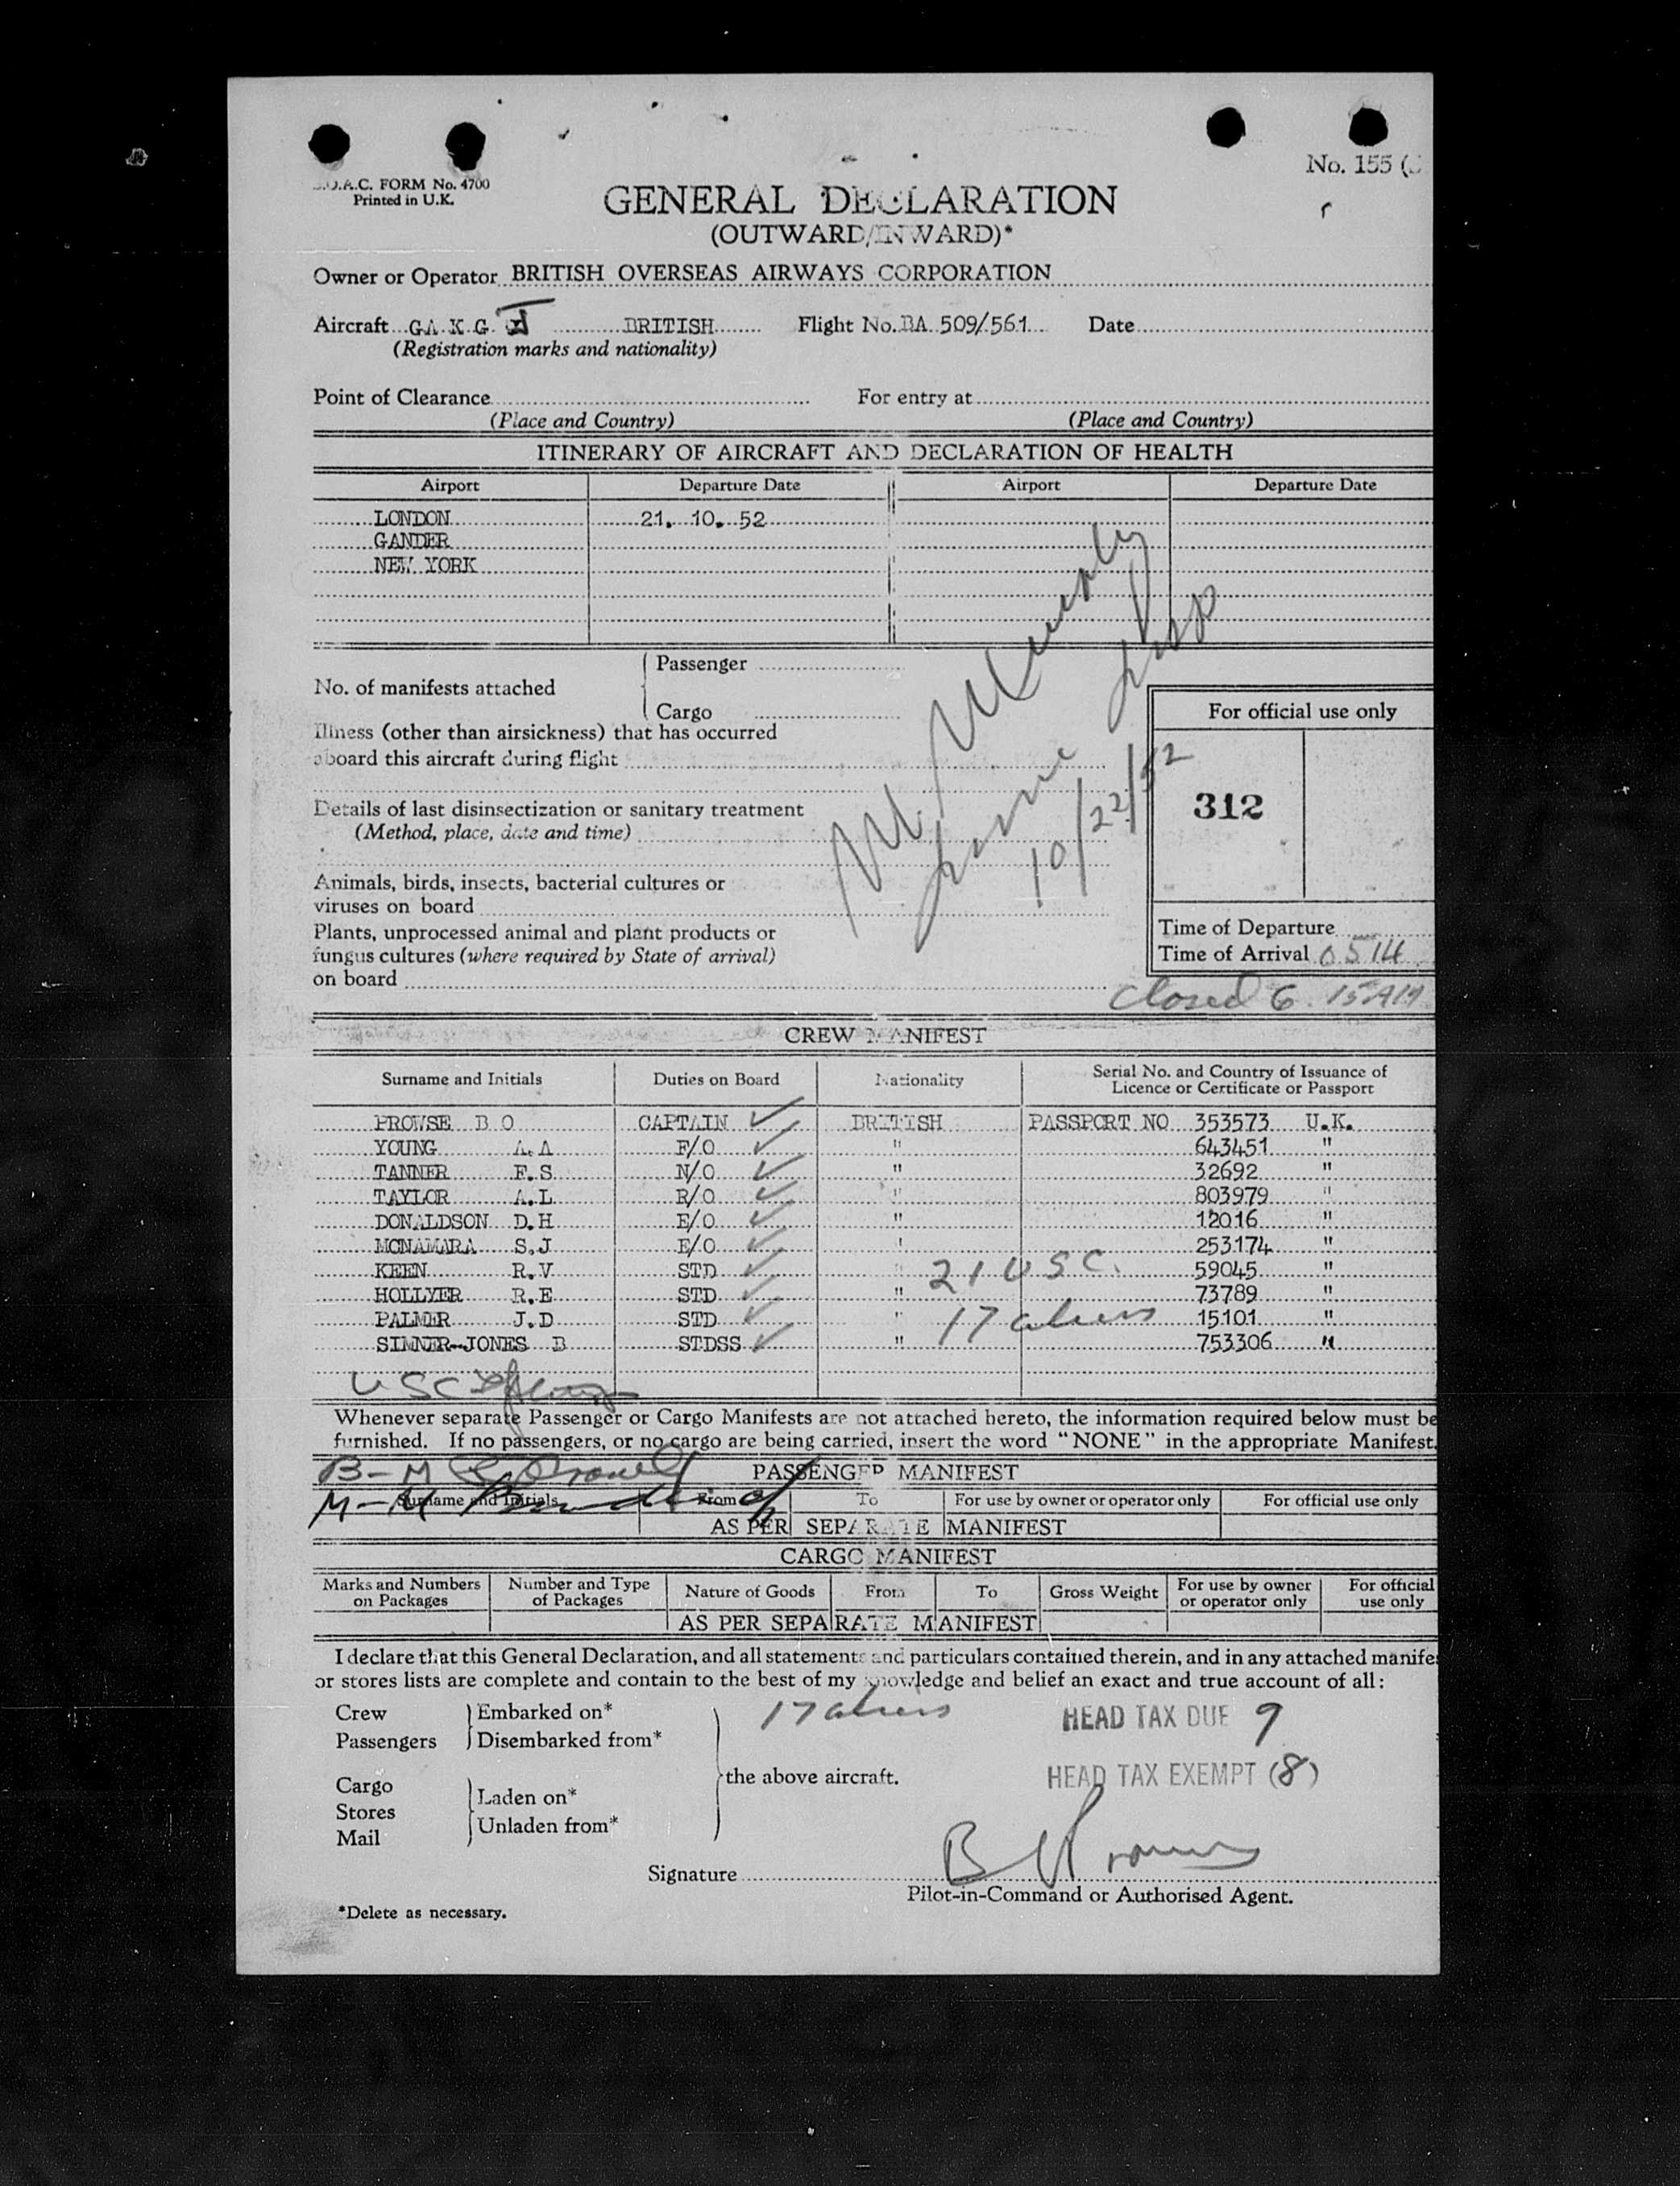 No. 155
O.A.C. FORM No. 4700
Printed in U.K.
GENERAL DECLARATION
(OUTWARD/INWARD)*
Owner or Operator BRITISH OVERSEAS AIRWAYS CORPORATION
Aircraft GA K G BRITISH Flight No. BA 509/561 Date
(Registration marks and nationality)
Point of Clearance For entry at
(Place and Country) (Place and Country)
ITINERARY OF AIRCRAFT AND DECLARATION OF HEALTH
Airport Departure Date Airport Departure Date
LONDON 21. 10. 52
GANDER
NEW YORK
No. of manifests attached
Passenger
Cargo
10/22/52
Illness (other than airsickness) that has occurred
aboard this aircraft during flight
Details of last disinsectization or sanitary treatment
(Method, place, date and time)
Animals, birds, insects, bacterial cultures or
viruses on board
Plants, unprocessed animal and plant products or
fungus cultures (where required by State of arrival)
on board
For official use only
312
Time of Departure
Time of Arrival 0514
Closed 6.15 AM
CREW MANIFEST
Surname and Initials Duties on Board Nationality Serial No. and Country of Issuance of
Licence or Certificate or Passport
PROWSE B O CAPTAIN BRITISH PASSPORT NO 353573 U.K.
YOUNG A.A F/O " 643451 "
TANNER F.S N/O " 32692 "
TAYLOR A.L R/O " 803979 "
DONALDSON D.H E/O " 12016 "
MCNAMARA S.J E/O " 253174 "
KEEN R.V STD " 59045 "
21 USC.
HOLLYER R.E STD " 73789 "
PALMER J.D STD " 15101 "
17 aliens
SIMNER-JONES B STDSS " 753306 "
USC
Whenever separate Passenger or Cargo Manifests are not attached hereto, the information required below must be
furnished. If no passengers, or no cargo are being carried, insert the word "NONE" in the appropriate Manifest.
B-M
PASSENGER MANIFEST
M-M
Surname and Initials From To For use by owner or operator only For official use only
AS PER SEPARATE MANIFEST
CARGO MANIFEST
Marks and Numbers on Packages Number and Type of Packages Nature of Goods From To Gross Weight For use by owner or operator only For official use only
AS PER SEPARATE MANIFEST
I declare that this General Declaration, and all statements and particulars contained therein, and in any attached manife
or stores lists are complete and contain to the best of my knowledge and belief an exact and true account of all:
Crew Embarked on*
Passengers Disembarked from*
17 aliens
HEAD TAX DUE 9
the above aircraft.
HEAD TAX EXEMPT (8)
Cargo
Stores
Mail
Laden on*
Unladen from*
Signature
Pilot-in-Command or Authorised Agent.
*Delete as necessary.